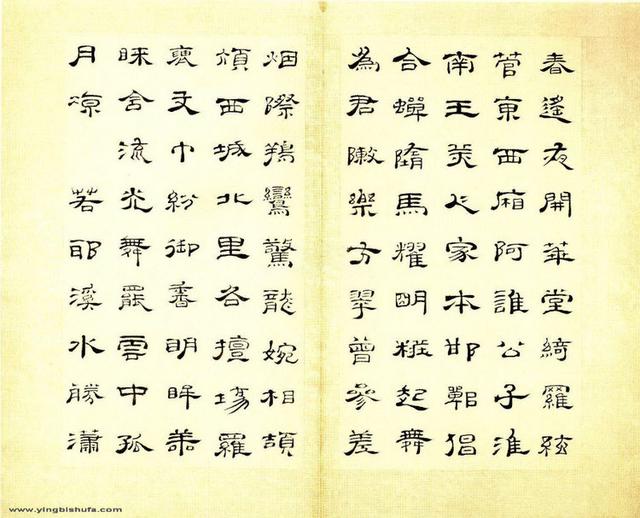 春遙夜開華堂綺羅絃
菅東西廂阿誰公子淮
南王美人家本邯鄲倡
合蟬隋馬耀明粧起舞
為君敶樂方翠曾參差
烟際鸞驚龍婉相頡
頏西城北里各擅場羅
褎文巾紛御香明眸善
睞含流光舞罷雲中孤
月涼 若耶溪水勝瀟
www.yingbishufa.com